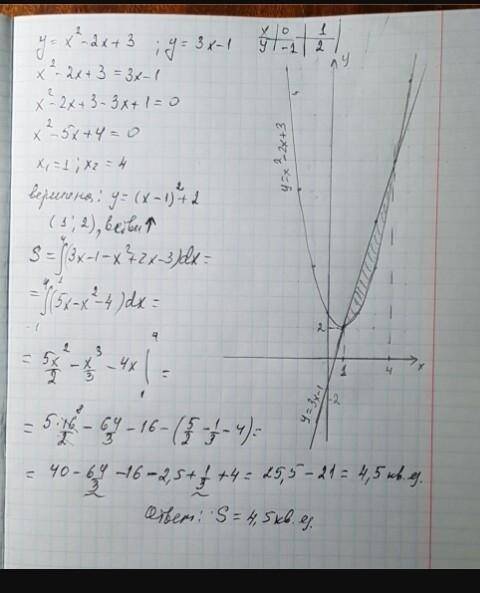 y = x² - 2x + 3 ; y = 3x - 1
x | 0 | 1
y | -1 | 2
x² - 2x + 3 = 3x - 1
x² - 2x + 3 - 3x + 1 = 0
x² - 5x + 4 = 0
x₁ = 1 ; x₂ = 4
вершина: y = (x - 1)² + 2
(1; 2), ветви ↑
S = ∫₁⁴ (3x - 1 - x² + 2x - 3)dx =
= ∫₁⁴ (5x - x² - 4)dx =
= 5x²/2 - x³/3 - 4x |₁⁴ =
= 5·16⁸/2 - 64/3 - 16 - (5/2 - 1/3 - 4) =
= 40 - 64/3 - 16 - 2,5 + 1/3 + 4 = 25,5 - 21 = 4,5 кв.ед.
Ответ: S = 4,5 кв.ед.
y
y = x² - 2x + 3
2
x
1
4
-2
y = 3x - 1